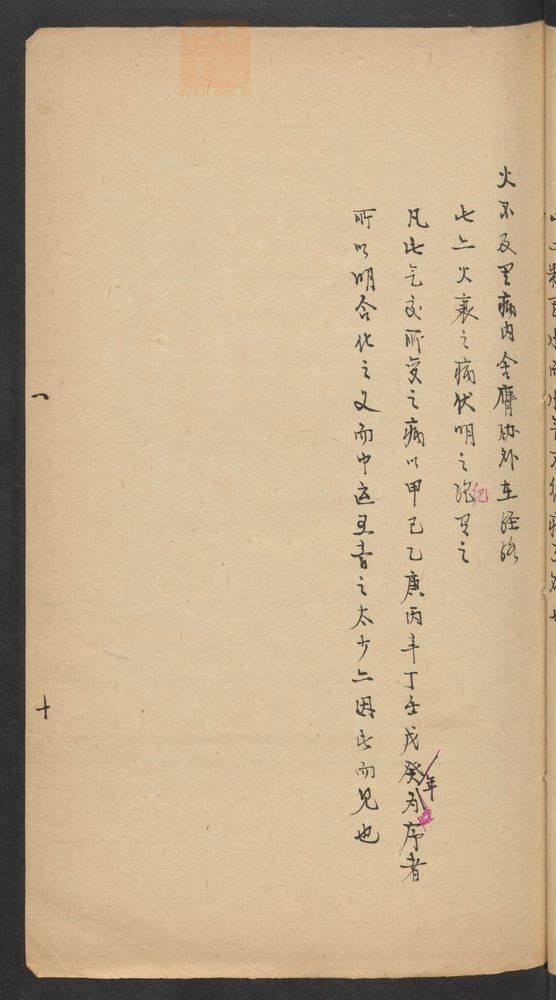 火不及里病内舍膺胁外在经络
七亠火衰之病伏明之纪
里之
凡此气交所受之病以甲己乙庚丙辛丁壬戊癸年为序者
所以明合化之义而中运五音之太少亠因此而见也
十